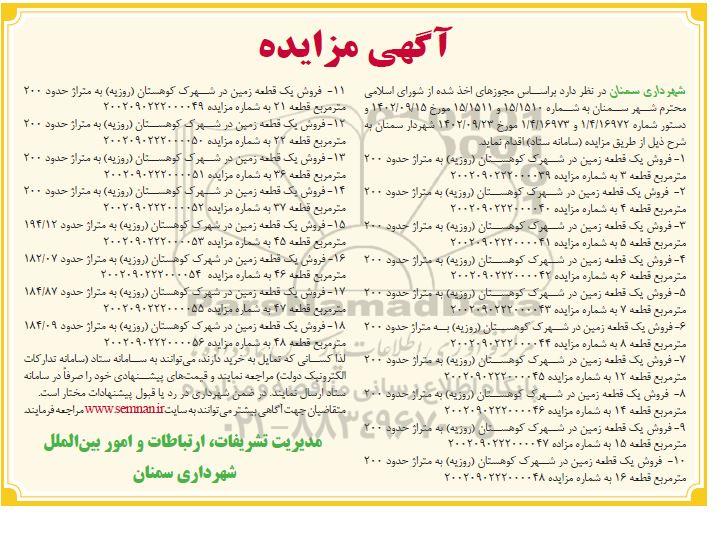 آگهی مزایده
شهرداری سمنان در نظر دارد براساس مجوزهای اخذ شده از شورای اسلامی
محترم شهر سمنان به شماره ۱۵/۱۵۱۰ و ۱۵/۱۵۱۱ مورخ ۱۴۰۲/۰۹/۱۵ و
دستور شماره ۱/۴/۱۶۹۷۲ و ۱/۴/۱۶۹۷۳ مورخ ۱۴۰۲/۰۹/۲۳ شهردار سمنان به
شرح ذیل از طریق مزایده (سامانه ستاد) اقدام نماید.
۱- فروش یک قطعه زمین در شهرک کوهستان (روزیه) به متراژ حدود ۲۰۰
مترمربع قطعه ۳ به شماره مزایده ۲۰۰۲۰۹۰۲۲۲۰۰۰۰۳۹
۲- فروش یک قطعه زمین در شهرک کوهستان (روزیه) به متراژ حدود ۲۰۰
مترمربع قطعه ۴ به شماره مزایده ۲۰۰۲۰۹۰۲۲۲۰۰۰۰۴۰
۳- فروش یک قطعه زمین در شهرک کوهستان (روزیه) به متراژ حدود ۲۰۰
مترمربع قطعه ۵ به شماره مزایده ۲۰۰۲۰۹۰۲۲۲۰۰۰۰۴۱
۴- فروش یک قطعه زمین در شهرک کوهستان (روزیه) به متراژ حدود ۲۰۰
مترمربع قطعه ۶ به شماره مزایده ۲۰۰۲۰۹۰۲۲۲۰۰۰۰۴۲
۵- فروش یک قطعه زمین در شهرک کوهستان (روزیه) به متراژ حدود ۲۰۰
مترمربع قطعه ۷ به شماره مزایده ۲۰۰۲۰۹۰۲۲۲۰۰۰۰۴۳
۶- فروش یک قطعه زمین در شهرک کوهستان (روزیه) به متراژ حدود ۲۰۰
مترمربع قطعه ۸ به شماره مزایده ۲۰۰۲۰۹۰۲۲۲۰۰۰۰۴۴
۷- فروش یک قطعه زمین در شهرک کوهستان (روزیه) به متراژ حدود ۲۰۰
مترمربع قطعه ۱۲ به شماره مزایده ۲۰۰۲۰۹۰۲۲۲۰۰۰۰۴۵
۸- فروش یک قطعه زمین در شهرک کوهستان (روزیه) به متراژ حدود ۲۰۰
مترمربع قطعه ۱۴ به شماره مزایده ۲۰۰۲۰۹۰۲۲۲۰۰۰۰۴۶
۹- فروش یک قطعه زمین در شهرک کوهستان (روزیه) به متراژ حدود ۲۰۰
مترمربع قطعه ۱۵ به شماره مزاده ۲۰۰۲۰۹۰۲۲۲۰۰۰۰۴۷
۱۰- فروش یک قطعه زمین در شهرک کوهستان (روزیه) به متراژ حدود ۲۰۰
مترمربع قطعه ۱۶ به شماره مزایده ۲۰۰۲۰۹۰۲۲۲۰۰۰۰۴۸
۱۱- فروش یک قطعه زمین در شهرک کوهستان (روزیه) به متراژ حدود ۲۰۰
مترمربع قطعه ۲۱ به شماره مزایده ۲۰۰۲۰۹۰۲۲۲۰۰۰۰۴۹
۱۲- فروش یک قطعه زمین در شهرک کوهستان (روزیه) به متراژ حدود ۲۰۰
مترمربع قطعه ۲۲ به شماره مزایده ۲۰۰۲۰۹۰۲۲۲۰۰۰۰۵۰
۱۳- فروش یک قطعه زمین در شهرک کوهستان (روزیه) به متراژ حدود ۲۰۰
مترمربع قطعه ۳۶ به شماره مزایده ۲۰۰۲۰۹۰۲۲۲۰۰۰۰۵۱
۱۴- فروش یک قطعه زمین در شهرک کوهستان (روزیه) به متراژ حدود ۲۰۰
مترمربع قطعه ۳۷ به شماره مزایده ۲۰۰۲۰۹۰۲۲۲۰۰۰۰۵۲
۱۵- فروش یک قطعه زمین در شهرک کوهستان (روزیه) به متراژ حدود ۱۹۴/۱۲
مترمربع قطعه ۴۵ به شماره مزایده ۲۰۰۲۰۹۰۲۲۲۰۰۰۰۵۳
۱۶- فروش یک قطعه زمین در شهرک کوهستان (روزیه) به متراژ حدود ۱۸۲/۰۷
مترمربع قطعه ۴۶ به شماره مزایده ۲۰۰۲۰۹۰۲۲۲۰۰۰۰۵۴
۱۷- فروش یک قطعه زمین در شهرک کوهستان (روزیه) به متراژ حدود ۱۸۴/۸۷
مترمربع قطعه ۴۷ به شماره مزایده ۲۰۰۲۰۹۰۲۲۲۰۰۰۰۵۵
۱۸- فروش یک قطعه زمین در شهرک کوهستان (روزیه) به متراژ حدود ۱۸۴/۰۹
مترمربع قطعه ۴۸ به شماره مزایده ۲۰۰۲۰۹۰۲۲۲۰۰۰۰۵۶
لذا کسانی که تمایل به خرید دارند، می‌توانند به سامانه ستاد (سامانه تدارکات
الکترونیک دولت) مراجعه نمایند و قیمت‌های پیشنهادی خود را صرفاً در سامانه
ستاد ارسال نمایند. در ضمن شهرداری در رد یا قبول پیشنهادات مختار است.
متقاضیان جهت آگاهی بیشتر می‌توانند به سایت www.semnan.ir مراجعه فرمایند.
مدیریت تشریفات، ارتباطات و امور بین‌الملل
شهرداری سمنان
پایگاه اطلاع رسانی مناقصه و مزایده
۰۲۱-۸۸۳۴۹۶۷۰